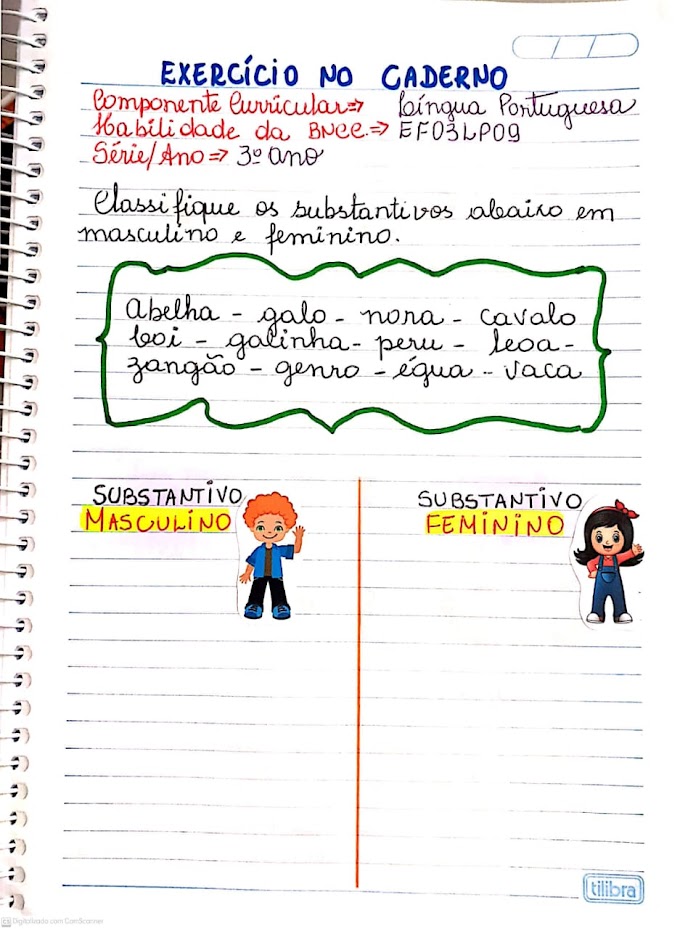 EXERCÍCIO NO CADERNO
Componente Curricular⇒ Língua Portuguesa
Habilidade da BNCC.⇒ EF03LP09
Série/Ano⇒ 3º ano
Classifique os substantivos abaixo em
masculino e feminino.
Abelha - galo - nora - cavalo
boi - galinha - peru - leoa -
zangão - genro - égua - vaca
SUBSTANTIVO
MASCULINO
SUBSTANTIVO
FEMININO
tilibra
CS Digitalizado com CamScanner